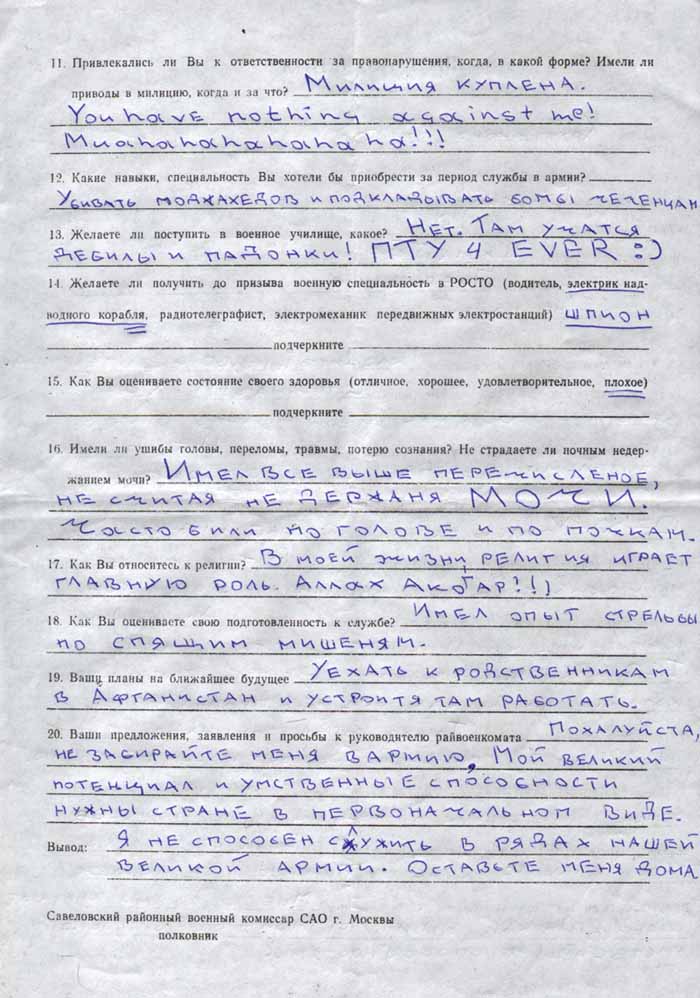 11. Привлекались ли Вы к ответственности за правонарушения, когда, в какой форме? Имели ли
приводы в милицию, когда и за что? Милиция куплена.
You have nothing against me!
Muahahahahahaha!!!
12. Какие навыки, специальность Вы хотели бы приобрести за период службы в армии?
Убивать моджахедов и подкладывать бомбы чеченцам
13. Желаете ли поступить в военное училище, какое? Нет. Там учатся
дебилы и падонки! ПТУ 4 EVER :)
14. Желаете ли получить до призыва военную специальность в РОСТО (водитель, электрик над-
водного корабля, радиотелеграфист, электромеханик передвижных электростанций) шпион
подчеркните
15. Как Вы оцениваете состояние своего здоровья (отличное, хорошее, удовлетворительное, плохое)
подчеркните
16. Имели ли ушибы головы, переломы, травмы, потерю сознания? Не страдаете ли ночным недер-
жанием мочи? Имел все выше перечисленое,
не считая не держаня МОЧИ.
Часто били по голове и по почкам.
17. Как Вы относитесь к религии? В моей жизни, религия играет
главную роль. Аллах Акбар!!!
18. Как Вы оцениваете свою подготовленность к службе? Имел опыт стрельбы
по спящим мишеням.
19. Ваши планы на ближайшее будущее Уехать к родственникам
в Афганистан и устроится там работать.
20. Ваши предложения, заявления и просьбы к руководителю райвоенкомата Пожалуйста,
не засирайте меня в армию, Мой великий
потенциал и умственные способности
нужны стране в первоначальном виде.
Вывод: Я не способен служить в рядах нашей
великой армии. Оставьте меня дома
Савеловский районный военный комиссар САО г. Москвы
полковник